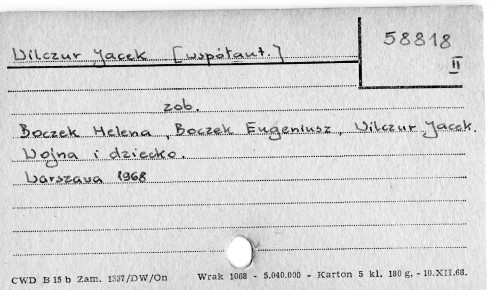 Wilczur Jacek [współaut.]
58818
II
zob.
Boczek Helena, Boczek Eugeniusz, Wilczur Jacek.
Wojna i dziecko.
Warszawa 1968
CWD B 15 b Zam. 1337/DW/On Wrak 1068 - 5.040.000 - Karton 5 kl. 180 g. - 10.XII.68.